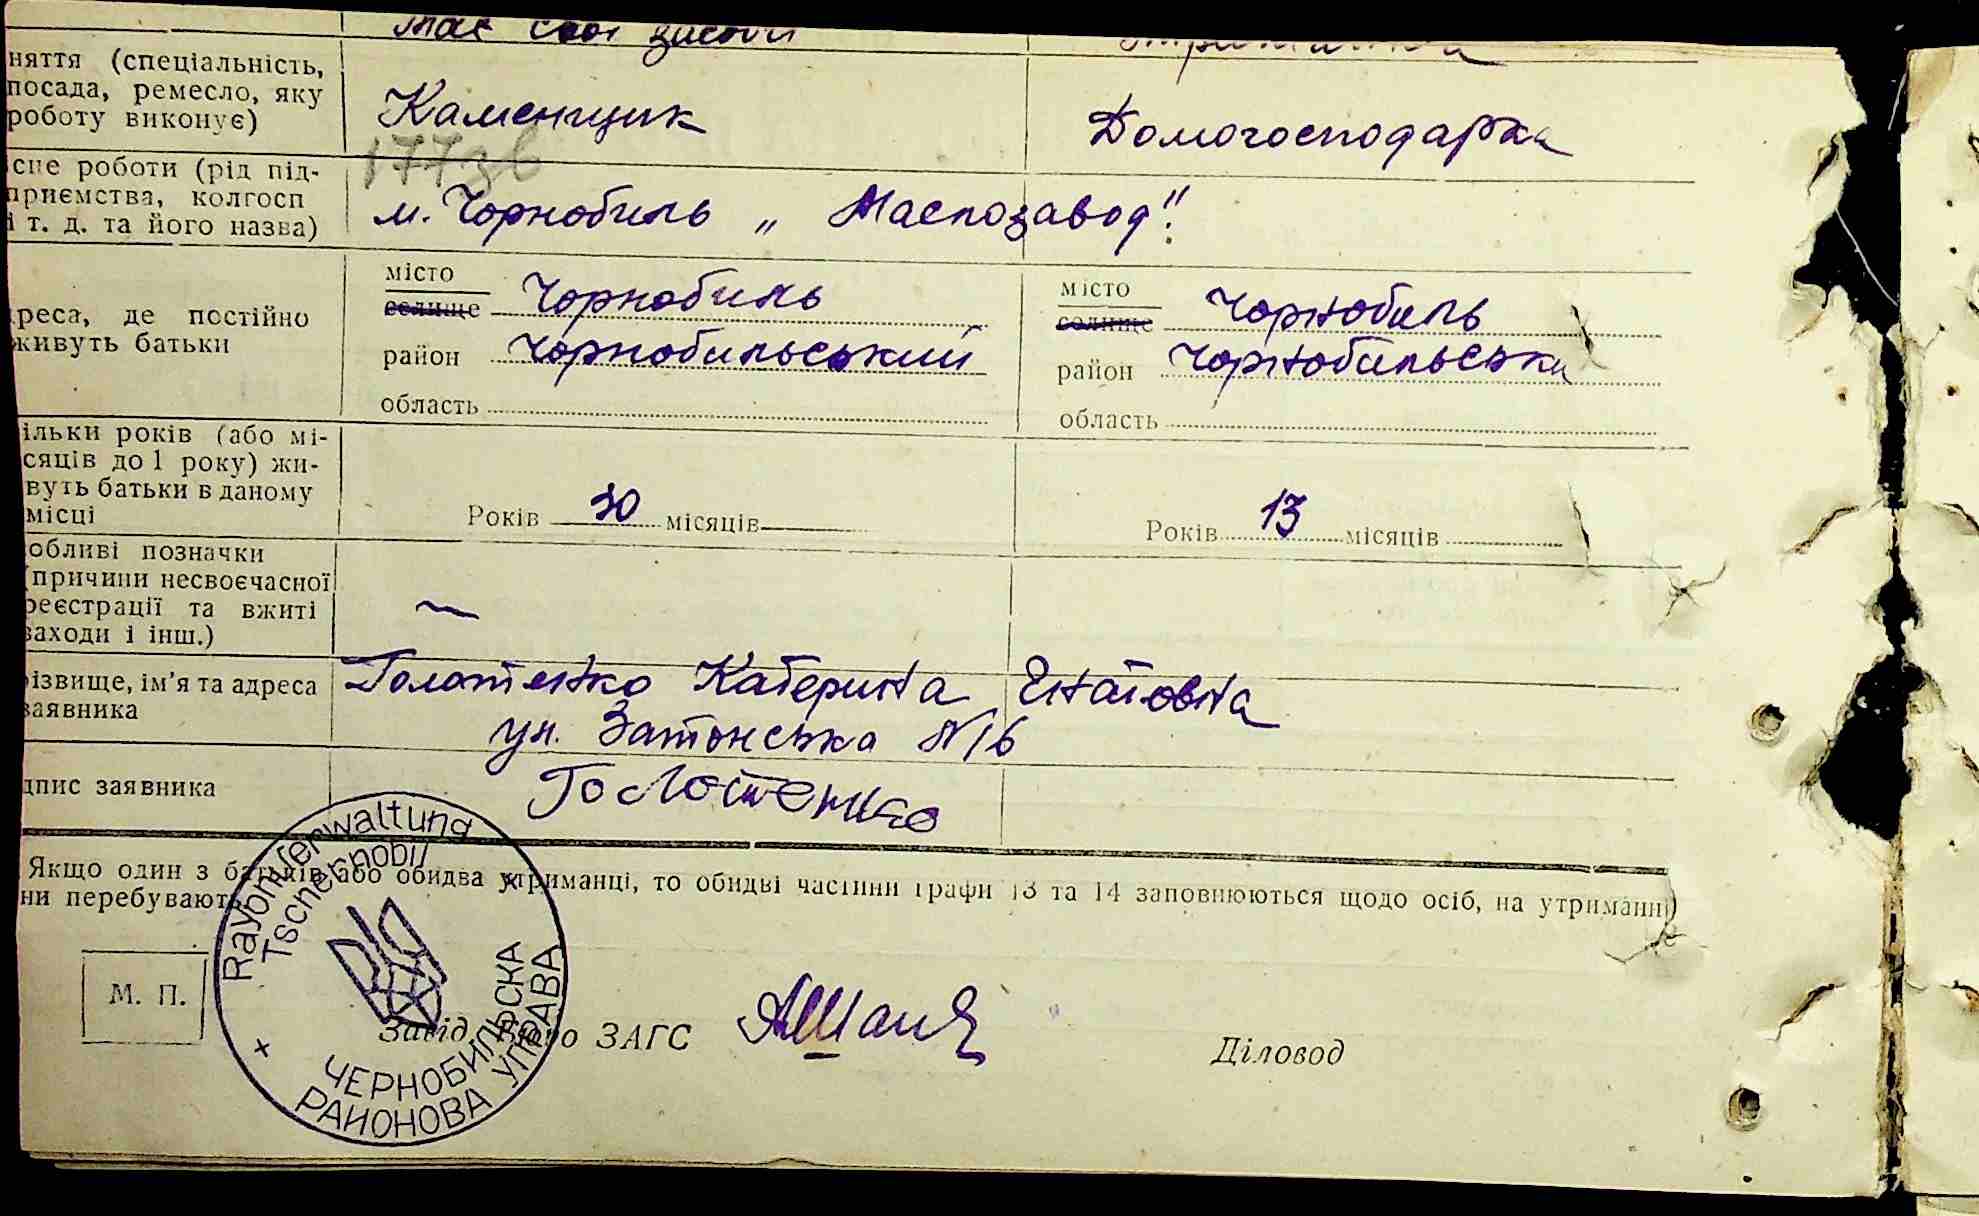 має свої засоби
няття (спеціальність,
посада, ремесло, яку
роботу виконує)
Каменщик
Домогосподарка
177зв
сце роботи (рід під-
приємства, колгосп
і т. д. та його назва)
м. Чорнобиль „ Маслозавод"
реса, де постійно
живуть батьки
місто
селище Чорнобиль
район Чорнобильський
область
місто
селище Чорнобиль
район Чорнобильськи
область
ільки років (або мі-
сяців до 1 року) жи-
вуть батьки в даному
місці
Років 30 місяців
Років 13 місяців
обливі позначки
(причини несвоєчасної
реєстрації та вжиті
заходи і інш.)
різвище, ім'я та адреса
заявника
Голотенко Катерина Гнатовна
ул. Затонська №16
дпис заявника
Голотенко
Якщо один з батьків або обидва утриманці, то обидві частини графи 13 та 14 заповнюються щодо осіб, на утриманні
ни перебувають
Rayonverwaltung
Tschernobil
ЧЕРНОБИЛЬСКА
РАЙОНОВА УПРАВА
М. П.
Завід. Бюро ЗАГС
Діловод